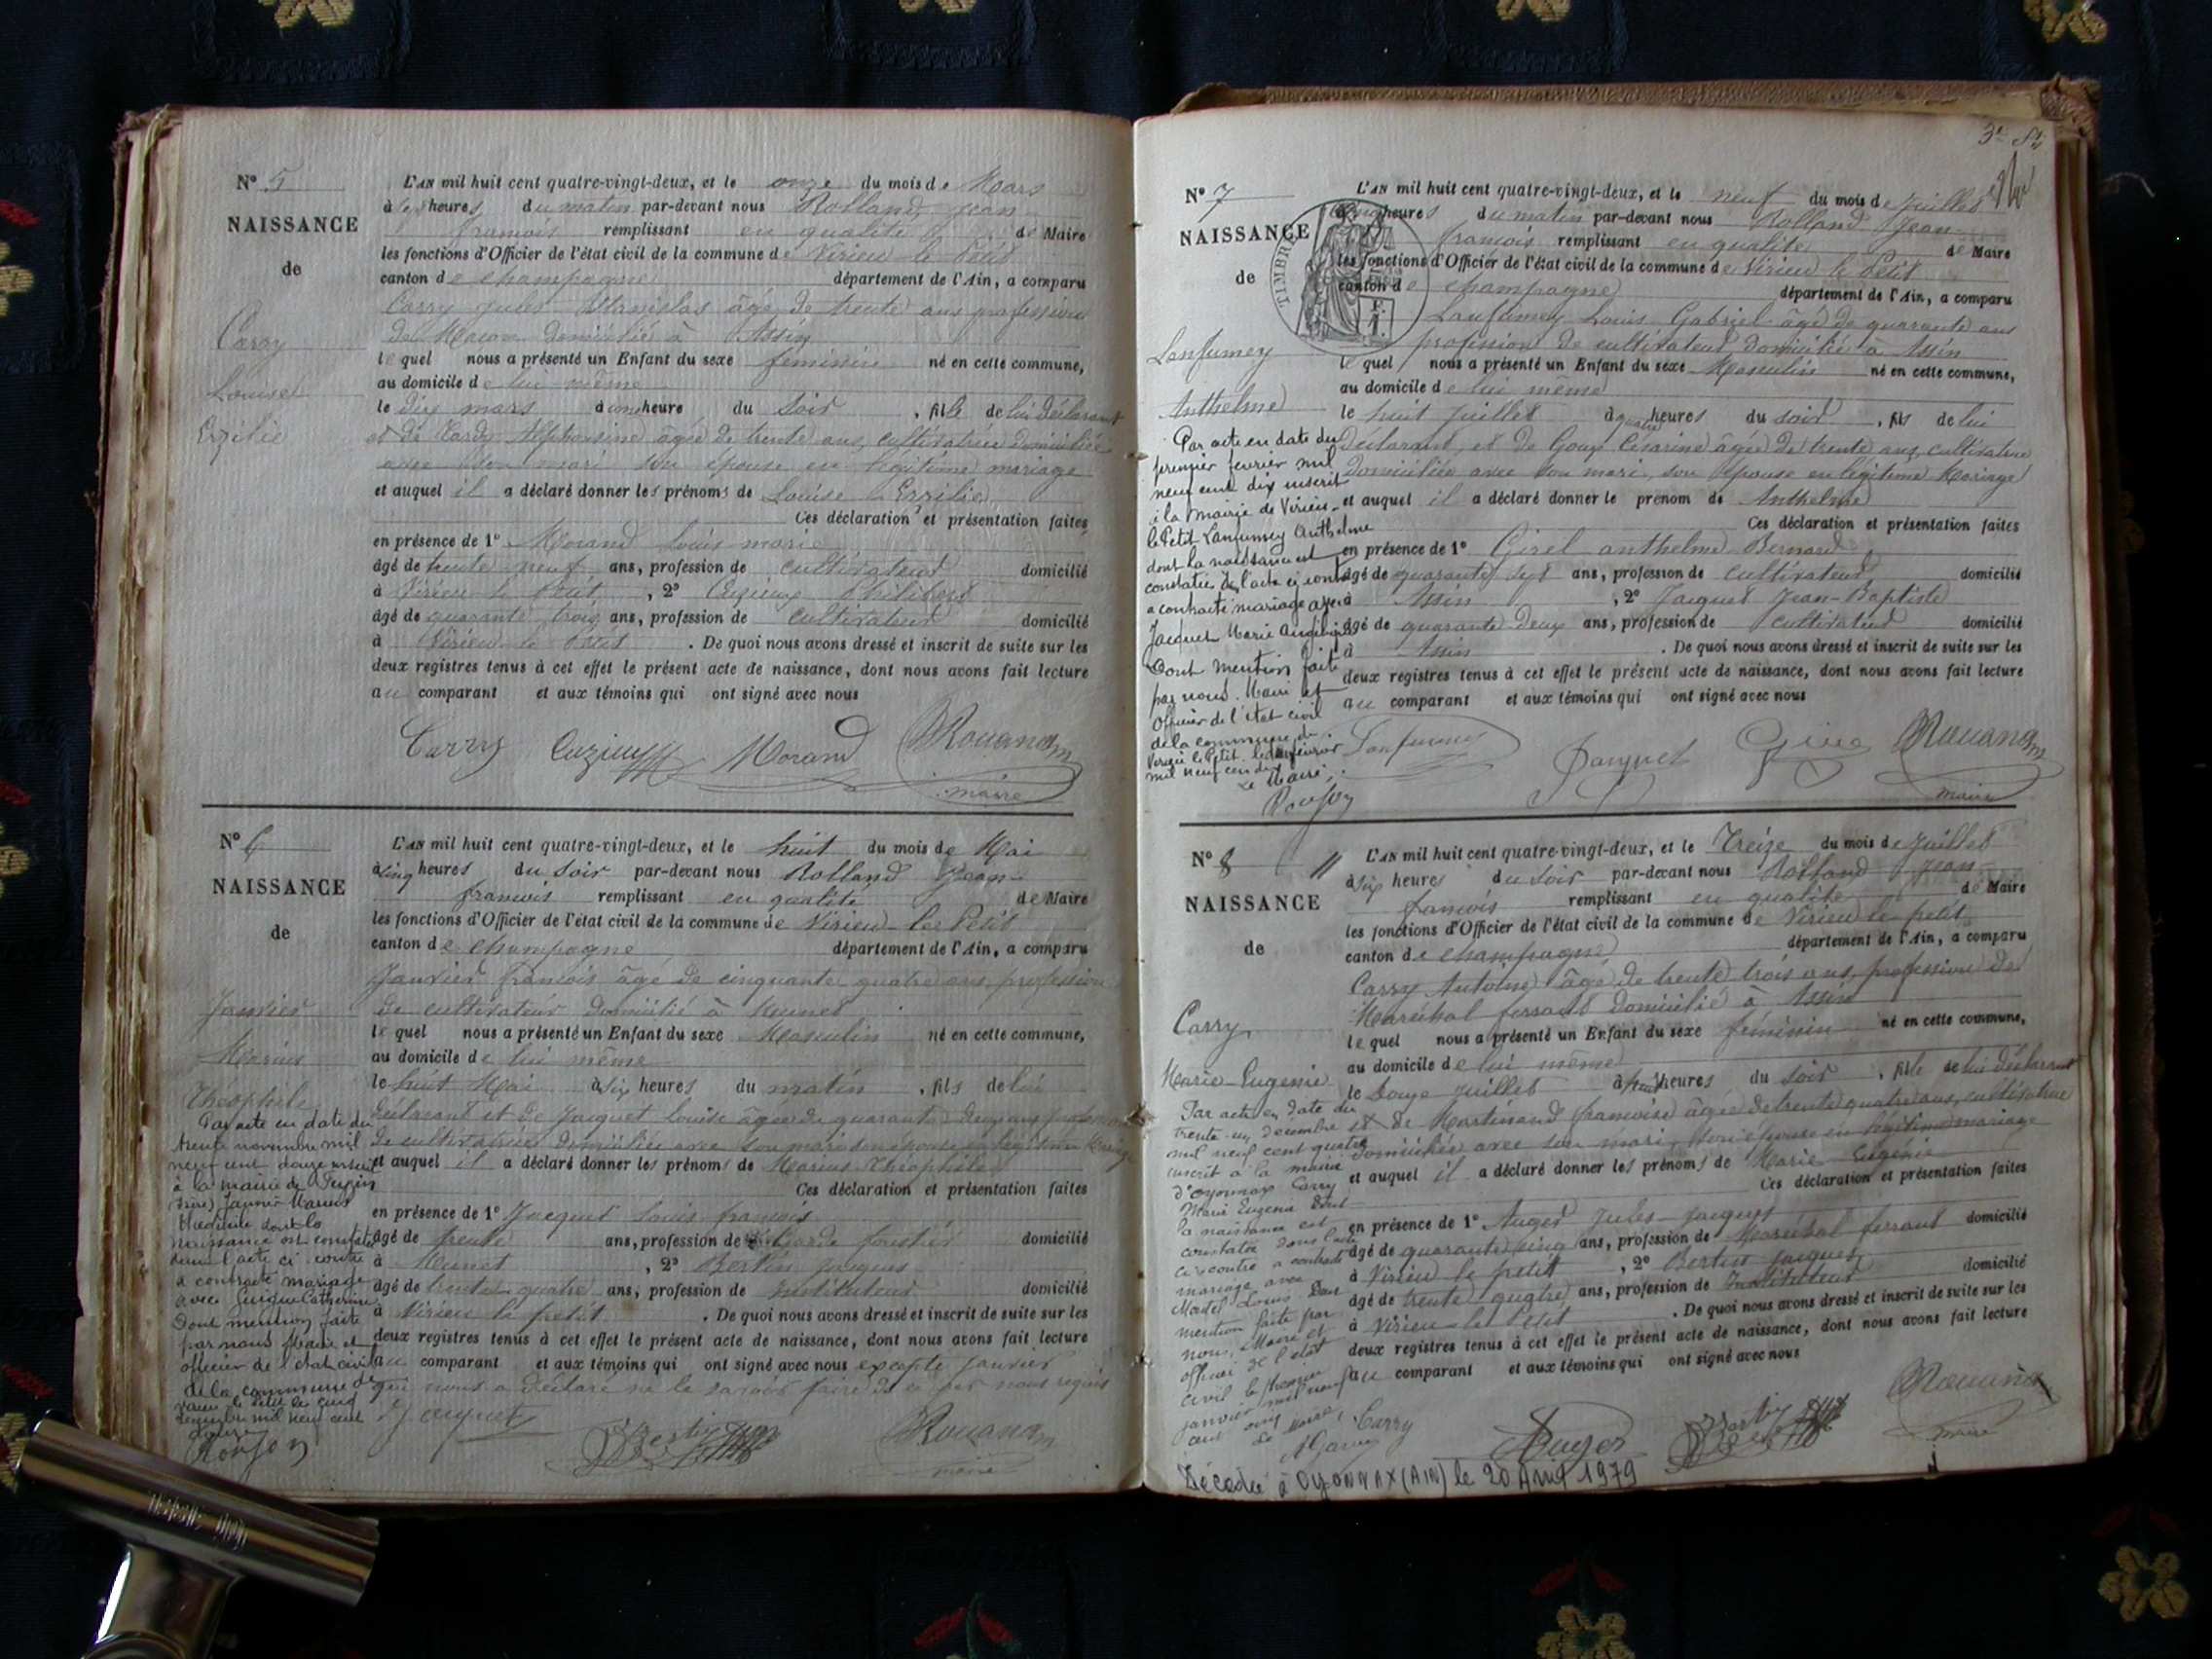 N° 5
NAISSANCE
de
Carry
Louise
Erzilie
L'AN mil huit cent quatre-vingt-deux, et le onze du mois de Mars
à sept heures du matin par-devant nous Rolland Jean
françois remplissant en qualité de Maire
les fonctions d'Officier de l'état civil de la commune de Virieu le Petit
canton de champagne département de l'Ain, a comparu
Carry Jules Stanislas âgé de trente ans profession
de Maçon domicilié à Assin
lequel nous a présenté un Enfant du sexe féminin né en cette commune,
au domicile de lui même
le dix mars à heure du soir, fille de lui déclarant
et de Alphonsine âgée de trente ans, cultivatrice domiciliée
avec son mari son épouse en légitime mariage
et auquel il a déclaré donner les prénoms de Louise Erzilie
Ces déclaration et présentation faites
en présence de 1° Morand Louis marie
âgé de trente neuf ans, profession de cultivateur domicilié
à Virieu le Petit, 2° Cuzieux Philibert
âgé de quarante trois ans, profession de cultivateur domicilié
à Virieu le Petit. De quoi nous avons dressé et inscrit de suite sur les
deux registres tenus à cet effet le présent acte de naissance, dont nous avons fait lecture
au comparant et aux témoins qui ont signé avec nous
Carry Cuzieux Morand
maire
N° 6
NAISSANCE
de
Janvier
Marius
Théophile
Par acte en date du
trente novembre mil
neuf cent douze inscrit
à la mairie de
Janvier Marius
Théophile dont la
naissance est constatée
dans l'acte ci-contre
a contracté mariage
avec Guigue Catherine
Dont mention faite
par nous Maire et
officier de l'état civil
de la commune de
Virieu le Petit le cinq
décembre mil neuf cent
douze
L'AN mil huit cent quatre-vingt-deux, et le huit du mois de Mai
à cinq heures du soir par-devant nous Rolland Jean
françois remplissant en qualité de Maire
les fonctions d'Officier de l'état civil de la commune de Virieu-le-Petit
canton de champagne département de l'Ain, a comparu
Janvier françois âgé de cinquante quatre ans profession
de cultivateur domicilié à Munet
lequel nous a présenté un Enfant du sexe Masculin né en cette commune,
au domicile de lui même
le huit Mai à six heures du matin, fils de lui
déclarant et de Jacquet Louise âgée de quarante deux ans profession
de cultivatrice domiciliée avec son mari son épouse en légitime Mariage
et auquel il a déclaré donner les prénoms de Marius Théophile
Ces déclaration et présentation faites
en présence de 1° Jacquet Louis françois
âgé de trente ans, profession de Garde forestier domicilié
à Munet, 2° Bertin Jacques
âgé de trente quatre ans, profession de instituteur domicilié
à Virieu le petit. De quoi nous avons dressé et inscrit de suite sur les
deux registres tenus à cet effet le présent acte de naissance, dont nous avons fait lecture
au comparant et aux témoins qui ont signé avec nous excepté Janvier
qui nous a déclaré ne le savoir faire de ce par nous requis
Jacquet Bertin
maire
N° 7
NAISSANCE
de
TIMBRE
Lanfumey
Anthelme
Par acte en date du
premier fevrier mil
neuf cent dix inscrit
à la Mairie de Virieu-
le-Petit Lanfumey Anthelme
dont la naissance est
constatée de l'acte ci-contre
a contracté mariage avec
Jacquet Marie Angélique
Dont Mention faite
par nous. Maire et
Officier de l'état civil
de la commune de
Virieu le Petit le février
mil neuf cent dix
Le Maire,
L'AN mil huit cent quatre-vingt-deux, et le neuf du mois de Juillet
à heures du matin par-devant nous Rolland Jean
françois remplissant en qualité de Maire
les fonctions d'Officier de l'état civil de la commune de Virieu le Petit
canton de champagne département de l'Ain, a comparu
Lanfumey Louis Gabriel âgé de quarante ans
profession de cultivateur domicilié à Assin
lequel nous a présenté un Enfant du sexe Masculin né en cette commune,
au domicile de lui même
le huit Juillet à quatre heures du soir, fils de lui
déclarant, et de Gouy Césarine âgée de trente ans, cultivatrice
domiciliée avec son mari, son épouse en légitime Mariage
et auquel il a déclaré donner le prénom de Anthelme
Ces déclaration et présentation faites
en présence de 1° Girel anthelme Bernard
âgé de quarante sept ans, profession de cultivateur domicilié
à Assin, 2° Jacquet Jean-Baptiste
âgé de quarante deux ans, profession de cultivateur domicilié
à Assin. De quoi nous avons dressé et inscrit de suite sur les
deux registres tenus à cet effet le présent acte de naissance, dont nous avons fait lecture
au comparant et aux témoins qui ont signé avec nous
Lanfumey Jacquet
maire
N° 8
NAISSANCE
de
Carry
Marie-Eugenie
Par acte en date du
trente-un decembre
mil neuf cent quatre
inscrit à la mairie
d'Oyonnax Carry
Marie Eugenie dont
la naissance est
constatée dans l'acte
ci-contre a contracté
mariage avec
Martel Louis Dont
mention faite par
nous, Maire et
officier de l'état
civil le premier
janvier mil neuf
cent cinq
Le Maire,
L'AN mil huit cent quatre-vingt-deux, et le Treize du mois de Juillet
à six heures du soir par-devant nous Rolland Jean
françois remplissant en qualité de Maire
les fonctions d'Officier de l'état civil de la commune de Virieu le petit
canton de champagne département de l'Ain, a comparu
Carry Antoine âgé de trente trois ans, profession de
Maréchal ferrant domicilié à Assin
lequel nous a présenté un Enfant du sexe féminin né en cette commune,
au domicile de lui même
le Douze Juillet à heures du soir, fille de lui déclarant
et de Martinand françoise âgée de trente quatre ans, cultivatrice
domiciliée avec son mari, son épouse en légitime mariage
et auquel il a déclaré donner les prénoms de Marie Eugénie
Ces déclaration et présentation faites
en présence de 1° Auger Jules-Jacques
âgé de quarante cinq ans, profession de Maréchal ferrant domicilié
à Virieu le petit, 2° Bertin Jacques
âgé de trente quatre ans, profession de Instituteur domicilié
à Virieu le Petit. De quoi nous avons dressé et inscrit de suite sur les
deux registres tenus à cet effet le présent acte de naissance, dont nous avons fait lecture
au comparant et aux témoins qui ont signé avec nous
Carry Auger Bertin
maire
Décédée à OYONNAX (AIN) le 20 Avril 1979